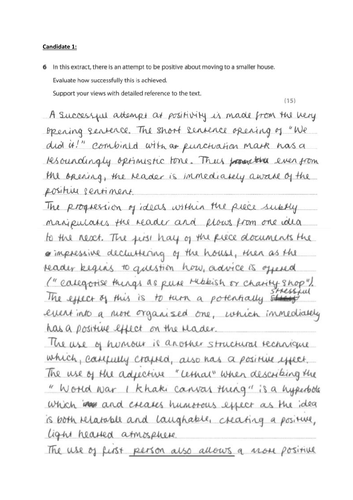 Candidate 1:
6 In this extract, there is an attempt to be positive about moving to a smaller house.
Evaluate how successfully this is achieved.
Support your views with detailed reference to the text.
(15)
A successful attempt at positivity is made from the very
opening sentence. The short sentence opening of "We
did it!" combined with a punctuation mark has a
resoundingly optimistic tone. Thus even from
the opening, the reader is immediately aware of the
positive sentiment.
The progression of ideas within the piece subtly
manipulates the reader and flows from one idea
to the next. The first half of the piece documents the
impressive decluttering of the house, then as the
reader begins to question how, advice is offered
("categorise things as pure rubbish or charity shop").
The effect of this is to turn a potentially stressful
event into a more organised one, which immediately
has a positive effect on the reader.
The use of humour is another structural technique
which, carefully crafted, also has a positive effect.
The use of the adjective "lethal" when describing the
"World War 1 khaki canvas thing" is a hyperbole
which and creates humorous effect as the idea
is both relatable and laughable, creating a positive,
light hearted atmosphere.
The use of first person also allows a more positive